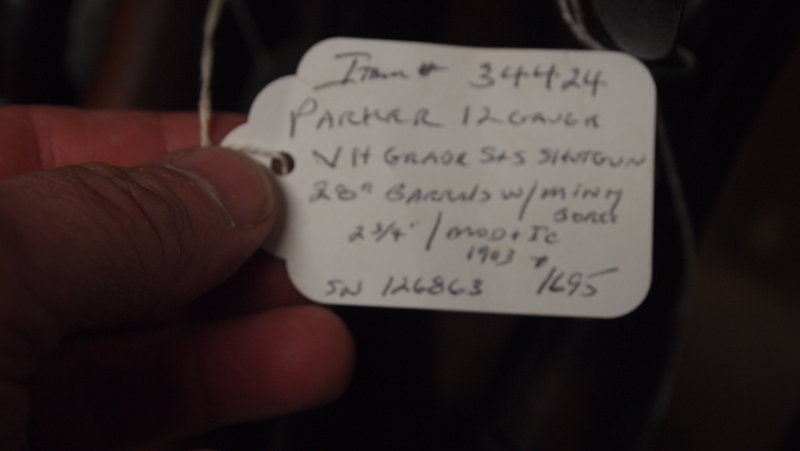 Item # 34424
PARKER 12 GAUGE
VH GRADE SXS SHOTGUN
28" BARRELS W/ MINTY
BORES
2 3/4" / MOD + IC
1903
SN 126863 1695